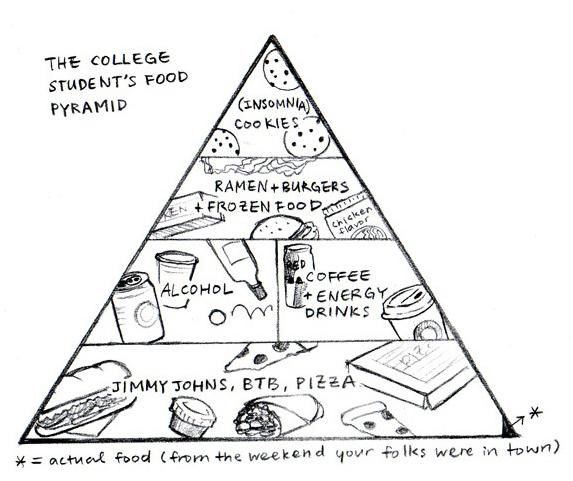 THE COLLEGE
STUDENT'S FOOD
PYRAMID
(INSOMNIA)
COOKIES
RAMEN + BURGERS
+ FROZEN FOOD
chicken
flavor
ALCOHOL
RED
COFFEE
+ ENERGY
DRINKS
JIMMY JOHNS, BTB, PIZZA
*
* = actual food (from the weekend your folks were in town)